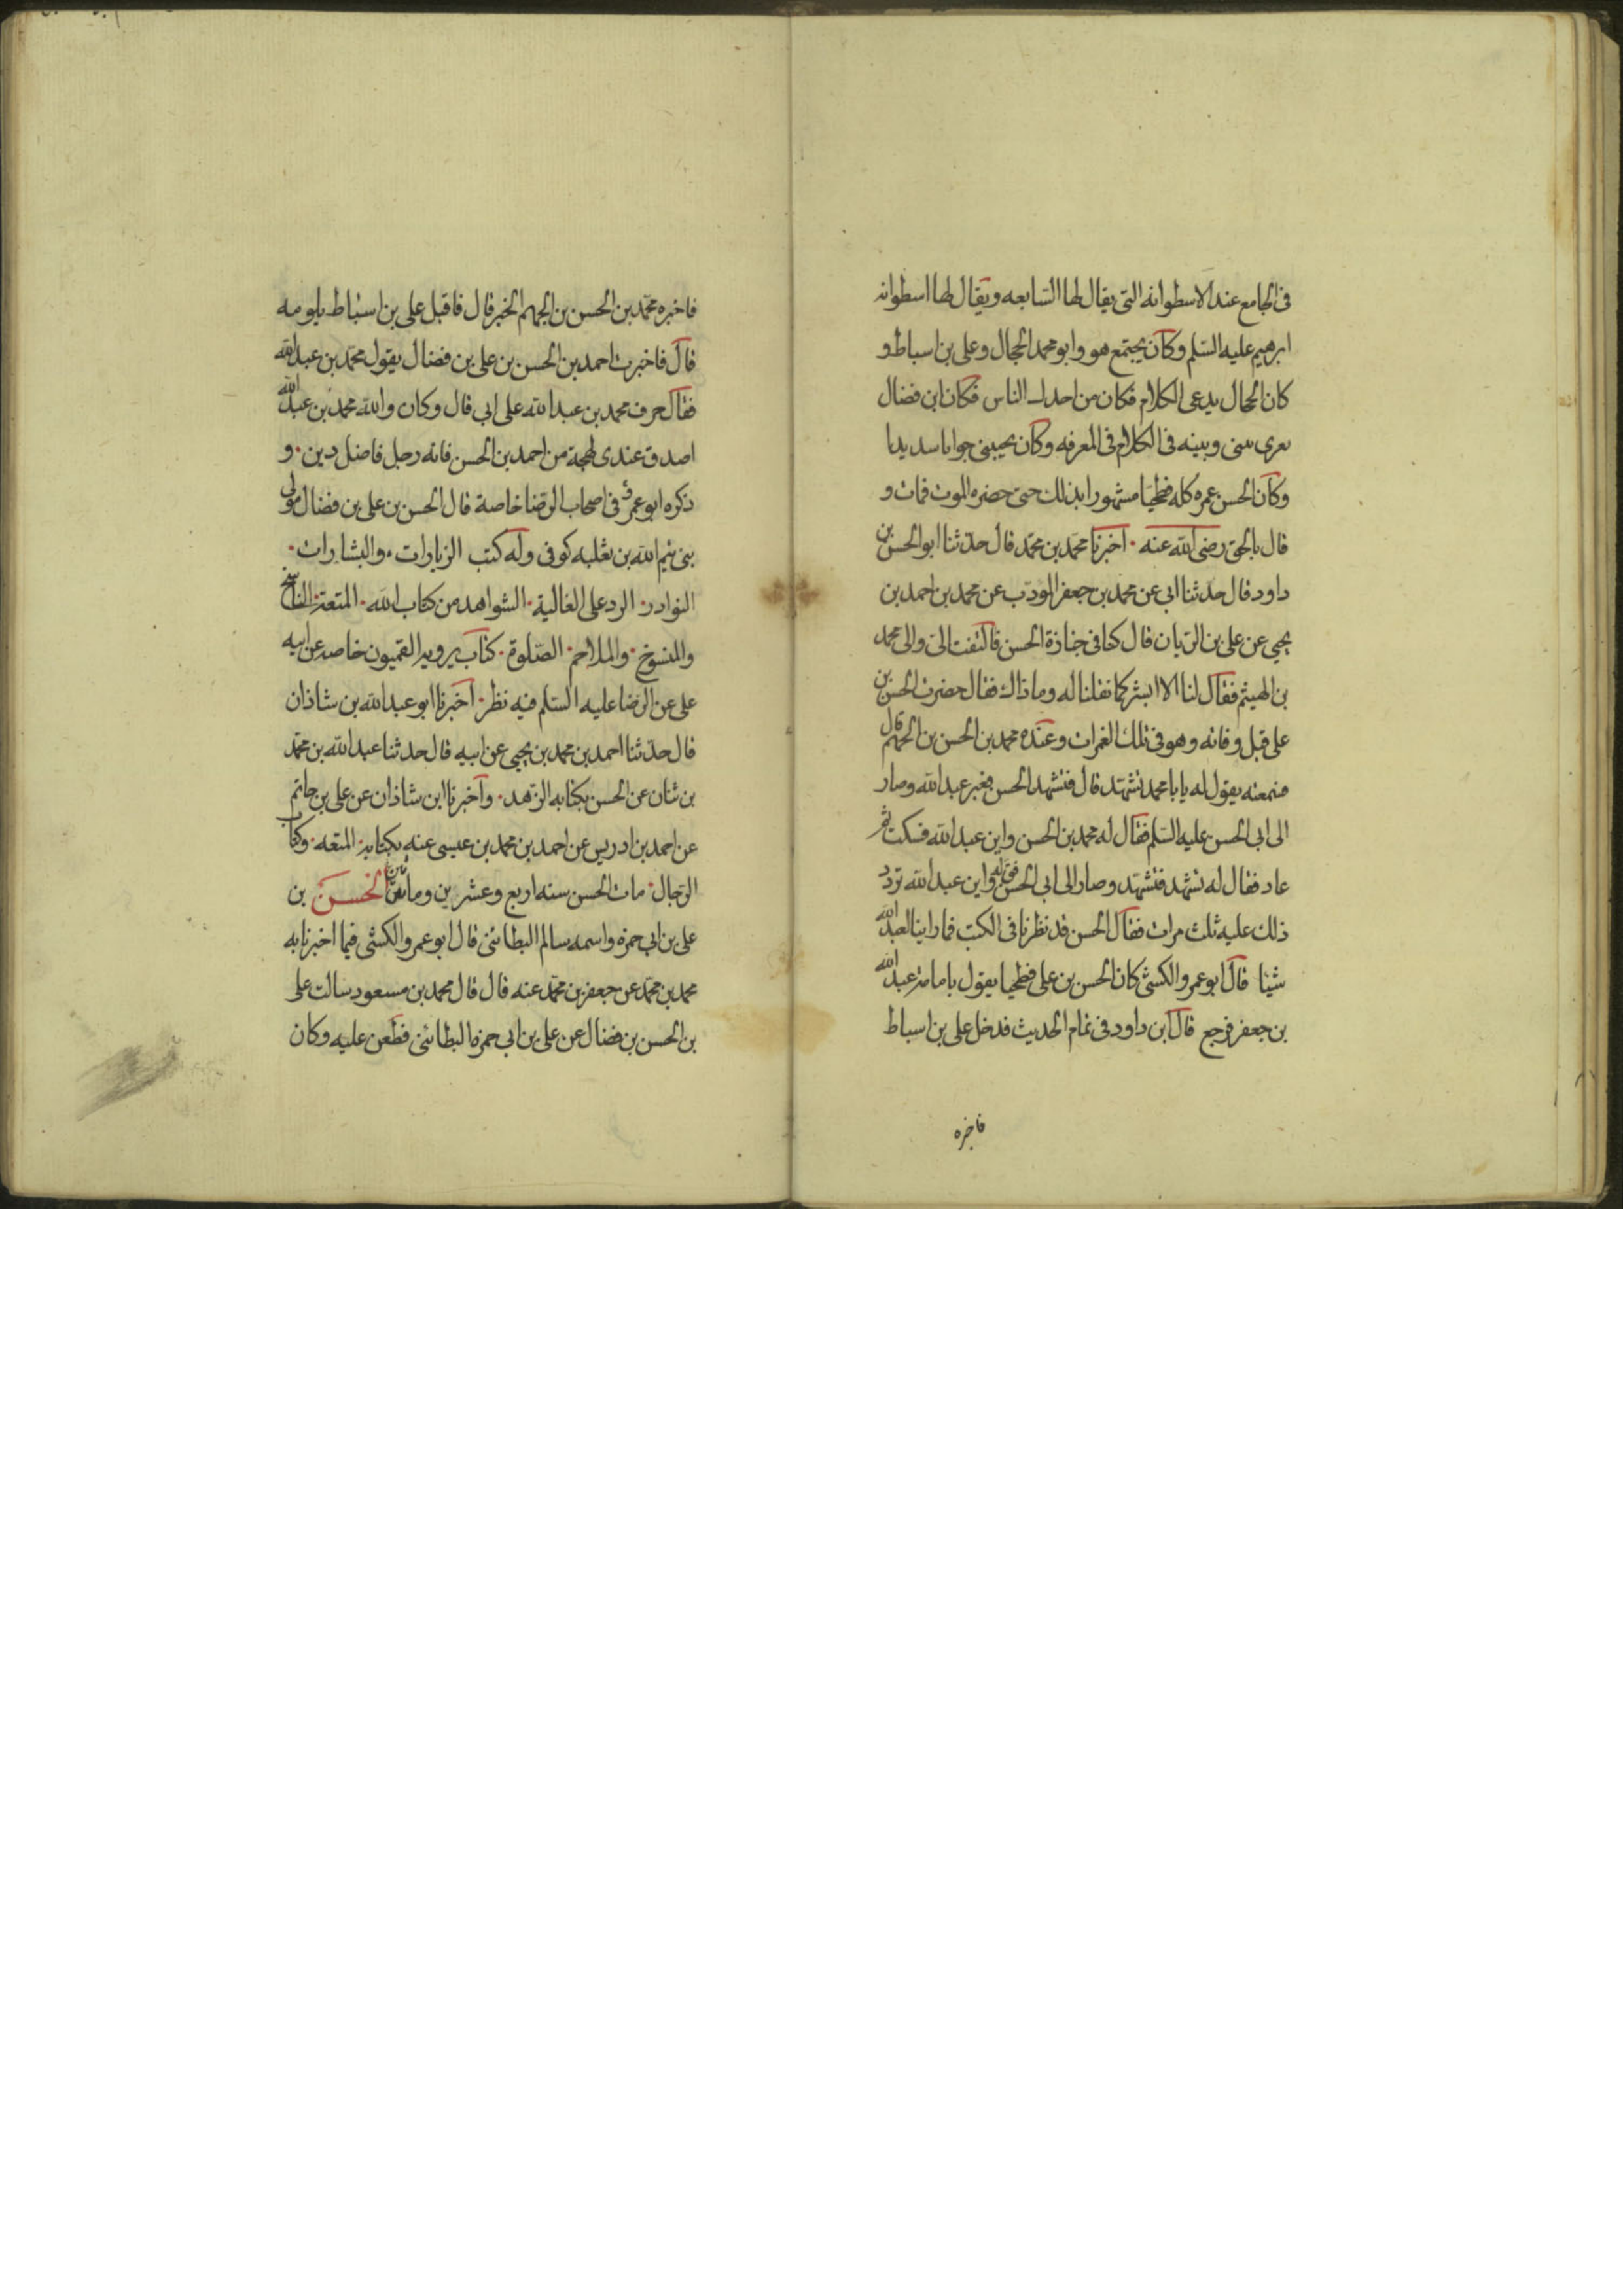 فى الجامع عند الاسطوانه التى يقال لها السابعه ويقال لها اسطوانه
ابرهيم عليه السلم وكان يجتمع هو وابو محمد الحجال وعلى بن اسباط و
كان الحجال يدعى الكلام فكان من اجدل الناس فكان ابن فضال
يغرى بينى وبينه فى الكلام فى المعرفه وكان يجيبنى جوابا سديدا
وكان الحسن عمره كله فطحيا مشهورا بذلك حتى حضره الموت فمات و
قال بالحق رضى الله عنه · اخبرنا محمد بن محمد قال حدثنا ابو الحسن بن
داود قال حدثنا ابى عن محمد بن جعفر المؤدب عن محمد بن احمد بن
يحيى عن على بن الريان قال كنا فى جنازة الحسن فالتفت الى والى محمد
بن الهيثم فقال لنا الا ابشركما فقلنا له وما ذاك فقال حضرت الحسن بن
على قبل وفاته وهو فى تلك الغمرات وعنده محمد بن الحسن بن الجهم قال
فسمعته يقول له يا با محمد تشهد قال فتشهد الحسن فعبر عبد الله وصار
الى ابى الحسن عليه السلم فقال له محمد بن الحسن واين عبد الله فسكت ثم
عاد فقال له تشهد فتشهد وصار الى ابى الحسن فقال له واين عبد الله تردد
ذلك عليه ثلث مرات فقال الحسن قد نظرنا فى الكتب فما راينا لعبد الله
شيئا قال ابو عمرو الكشى كان الحسن بن على فطحيا يقول بامامة عبد الله
بن جعفر فرجع قال ابن داود فى تمام الحديث فدخل على بن اسباط
فاخبره
فاخبره محمد بن الحسن بن الجهم الخبر قال فاقبل على بن اسباط يلومه
قال فاخبرت احمد بن الحسن بن على بن فضال بقول محمد بن عبد الله
فقال حرف محمد بن عبد الله على ابى قال وكان والله محمد بن عبد الله
اصدق عندى لهجة من احمد بن الحسن فانه رجل فاضل دين · و
ذكره ابو عمرو فى اصحاب الرضا خاصة قال الحسن بن على بن فضال مولى
بنى تيم الله بن ثعلبه كوفى وله كتب الزيارات · والبشارات ·
النوادر · الرد على الغالية · الشواهد من كتاب الله · المتعة · الناسخ
والمنسوخ · والملاحم · الصلوة · كتاب يرويه القميون خاصه عن ابيه
على عن الرضا عليه السلم فيه نظر · اخبرنا ابو عبد الله بن شاذان
قال حدثنا احمد بن محمد بن يحيى عن ابيه قال حدثنا عبد الله بن محمد
بن بنان عن الحسن بكتابه الزهد · واخبرنا ابن شاذان عن على بن حاتم
عن احمد بن ادريس عن احمد بن محمد بن عيسى عنه بكتابه · المتعه · وكتاب
الرجال · مات الحسن سنه اربع وعشرين ومائتين الحسن بن
على بن ابى حمزه واسمه سالم البطائنى قال ابو عمرو الكشى فيما اخبرنا به
محمد بن محمد عن جعفر بن محمد عنه قال قال محمد بن مسعود سالت على
بن الحسن بن فضال عن على بن ابى حمزه البطائنى فطعن عليه وكان